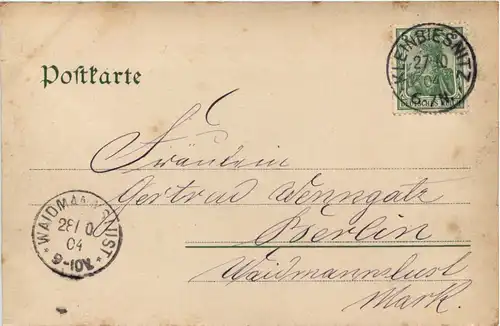 Postkarte
KLEINBIESNITZ
27 10
04
6-7N.
Fräulein
Gertrud Wenngatz
Berlin
Waidmannslust
Mark.
WAIDMANNSLUST
28/10
04
9-10V.